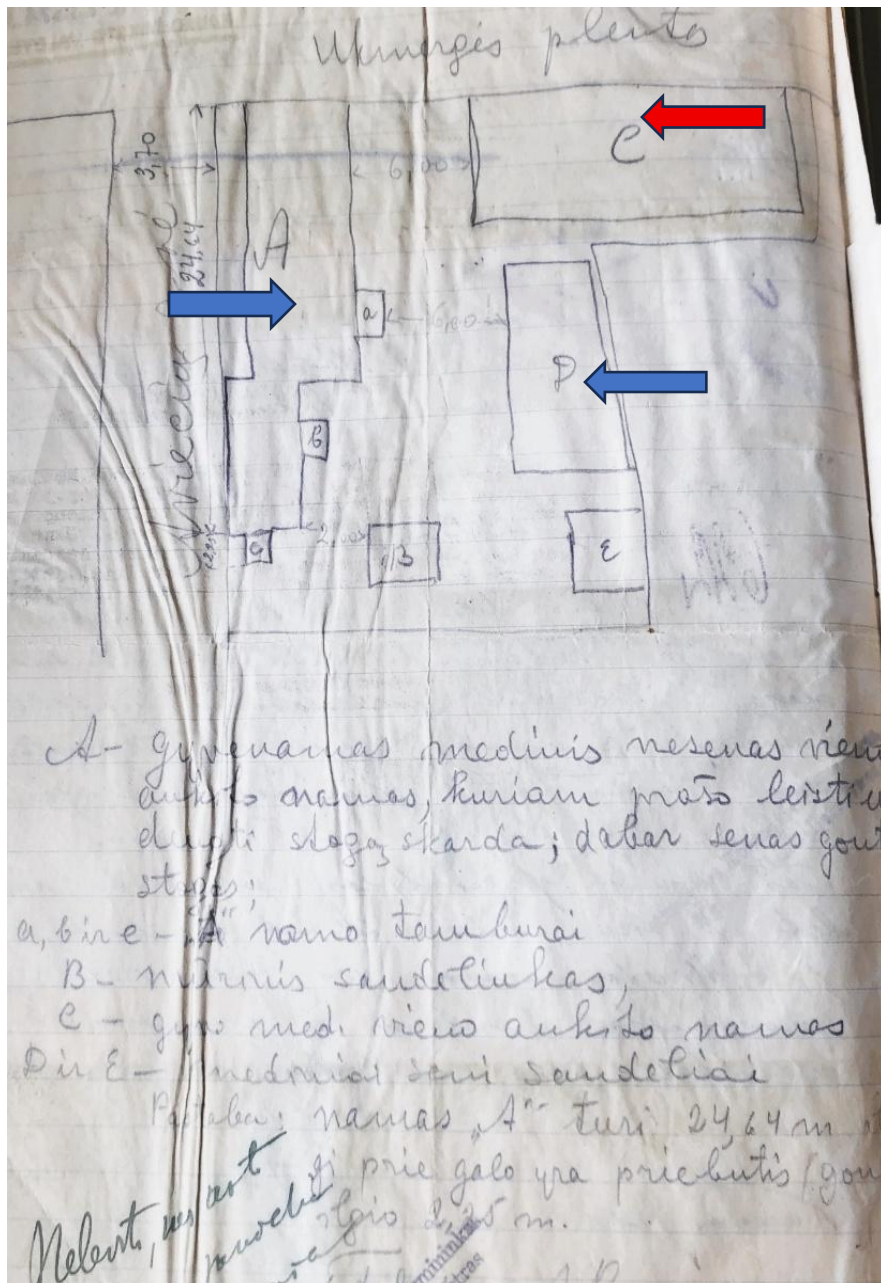 Ukmergės plentas
3,70
24,64
A
6,00
C
a
6,00
D
b
c
2,00
B
E
A - gyvenamas medinis nesenas vieno
aukšto namas, kuriam prašo leisti
dengti stogą skarda; dabar senas
stogas;
a, b ir c - „A" namo tambūrai
B - mūrinis sandėliukas,
C - gyv. med. vieno aukšto namas
D ir E - mediniai seni sandėliai
Pastaba: namas „A" turi 24,64 m
prie galo yra priebutis
ilgio 2,25 m.
Neleisti, nes